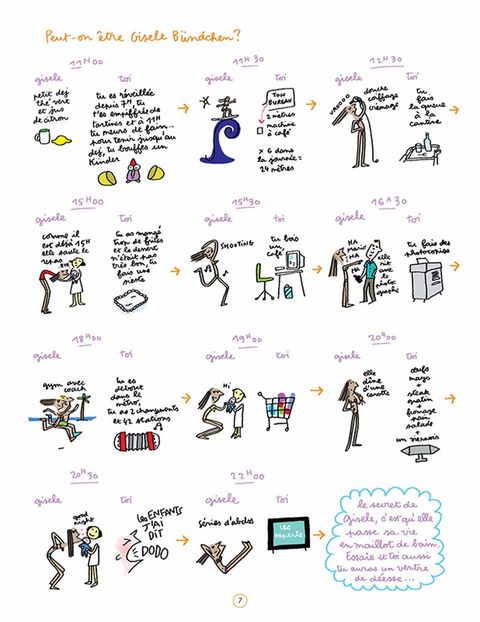 Peut-on être Gisele Bündchen?
11H00
gisele
toi
petit dej
thé vert et
jus
de citron
tu es réveillée
depuis 7H, tu
t'es empiffrée de
tartines et à 11H
tu meurs de faim...
pour tenir jusqu'au
dej, tu bouffes un
Kinder
11H30
gisele
toi
TON
BUREAU
2 mètres
machine
à café
x 6 dans
la journée =
24 mètres
12H30
gisele
toi
VROOOO
douche
coiffage
crémage
tu
fais
la queue
à la
cantine
15H00
gisele
toi
comme il
est déjà 15H
elle saute le
repas
tu as mangé
trop de frites
et le dessert
n'était pas
très bon, tu
fais une
sieste
15H30
gisele
toi
SHOOTING
tu bois
un
café
16H30
gisele
toi
HA
HA
HA
elle
rit
avec
le
photo
graphe
tu fais des
photocopies
18H00
gisele
toi
gym avec
coach
tu es
debout
dans le
métro,
tu as 2 changements
et 42 stations
19H00
gisele
toi
Hi
20H00
gisele
toi
elle
dîne
d'une
carotte
oeufs
mayo
+
steak
gratin
+
fromage
pain
salade
+
un viennois
20H30
gisele
toi
good
night
les ENFANTS
J'AI
DIT
DODO
22H00
gisele
toi
Séries d'abdos
les
experts
le secret de
Gisele, c'est qu'elle
passe sa vie
en maillot de bain.
Essaie et toi aussi
tu auras un ventre
de déesse...
7